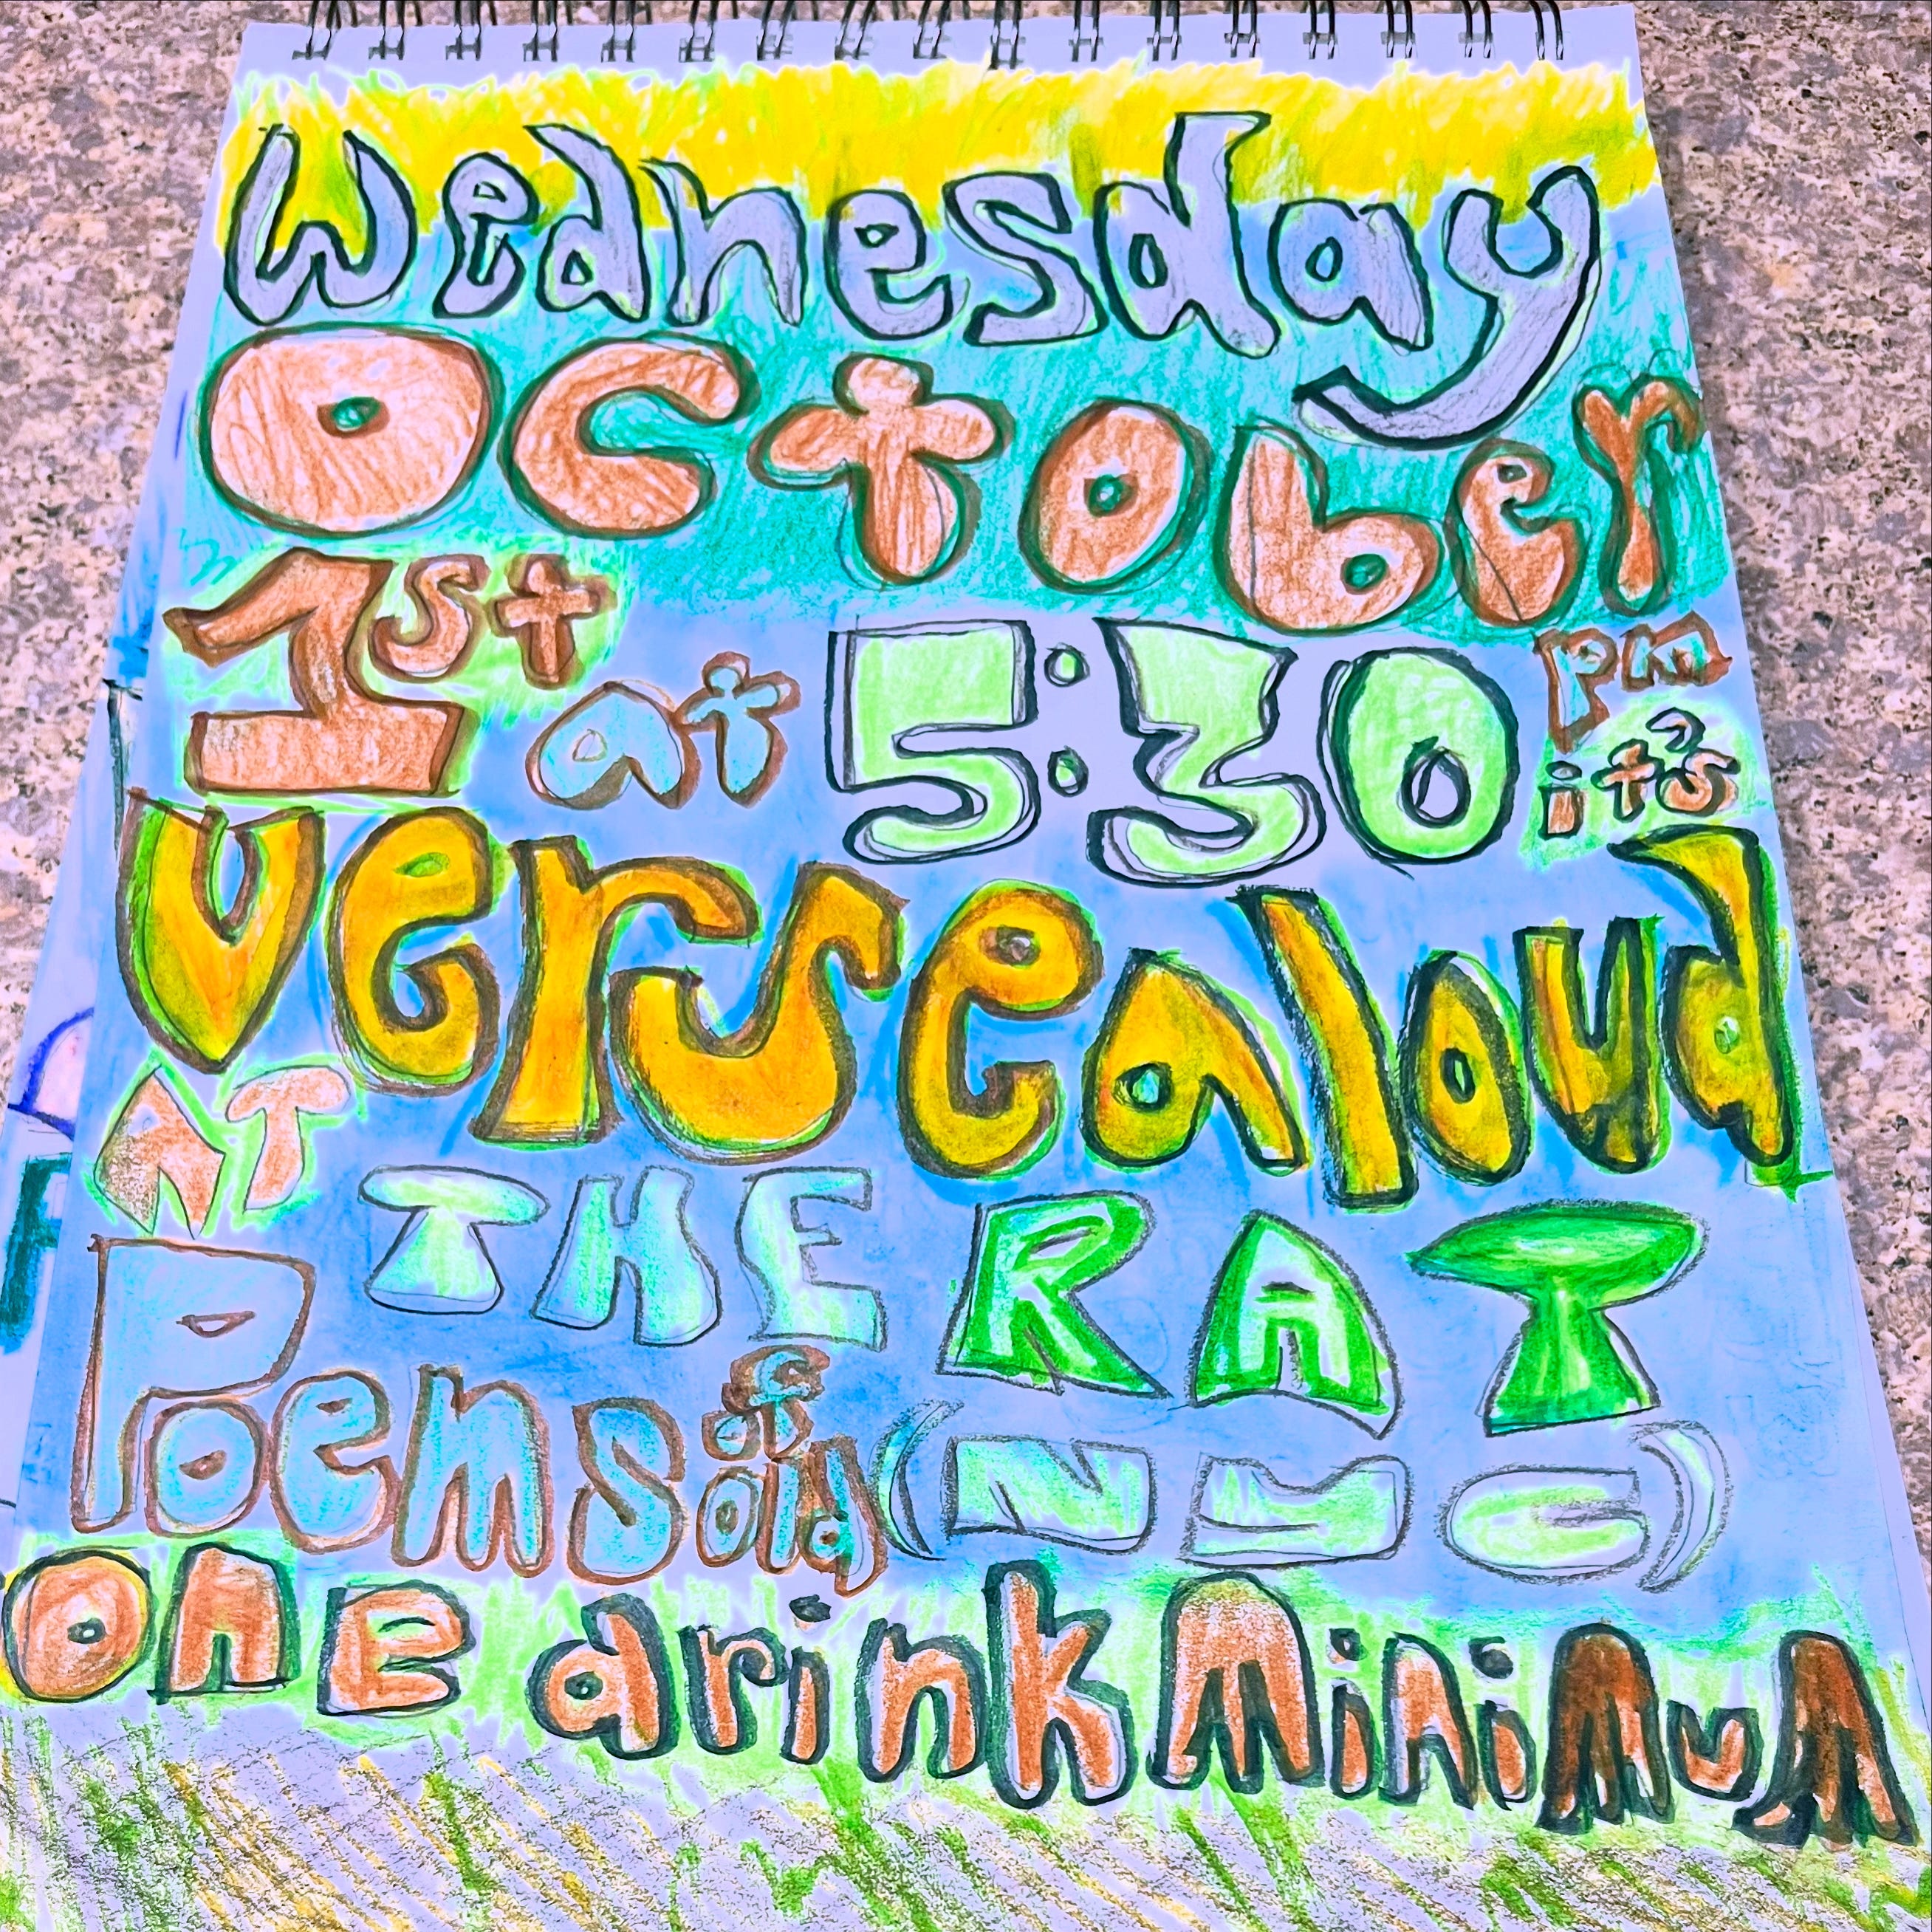 Wednesday
October
1st at 5:30 pm
it's
Versealoud
AT THE RAT
Poems of old (NYC)
One drink Minimum